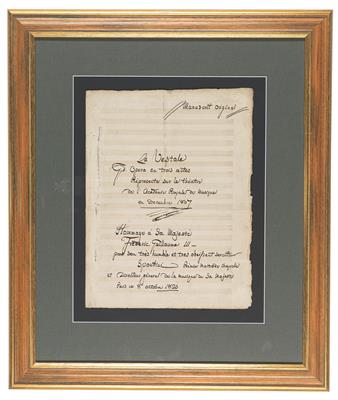 Manuscrit Original
La Vestale
Opera en trois actes
Représenté sur le théâtre
de l'Académie Royale de Musique
en Decembre 1807
Hommage à Sa Majesté
Frédéric Guillaume III
par son très humble et très obéissant serviteur
Spontini Premier maitre de chapelle
et Directeur général de la musique de Sa Majesté
Paris ce 8 octobre